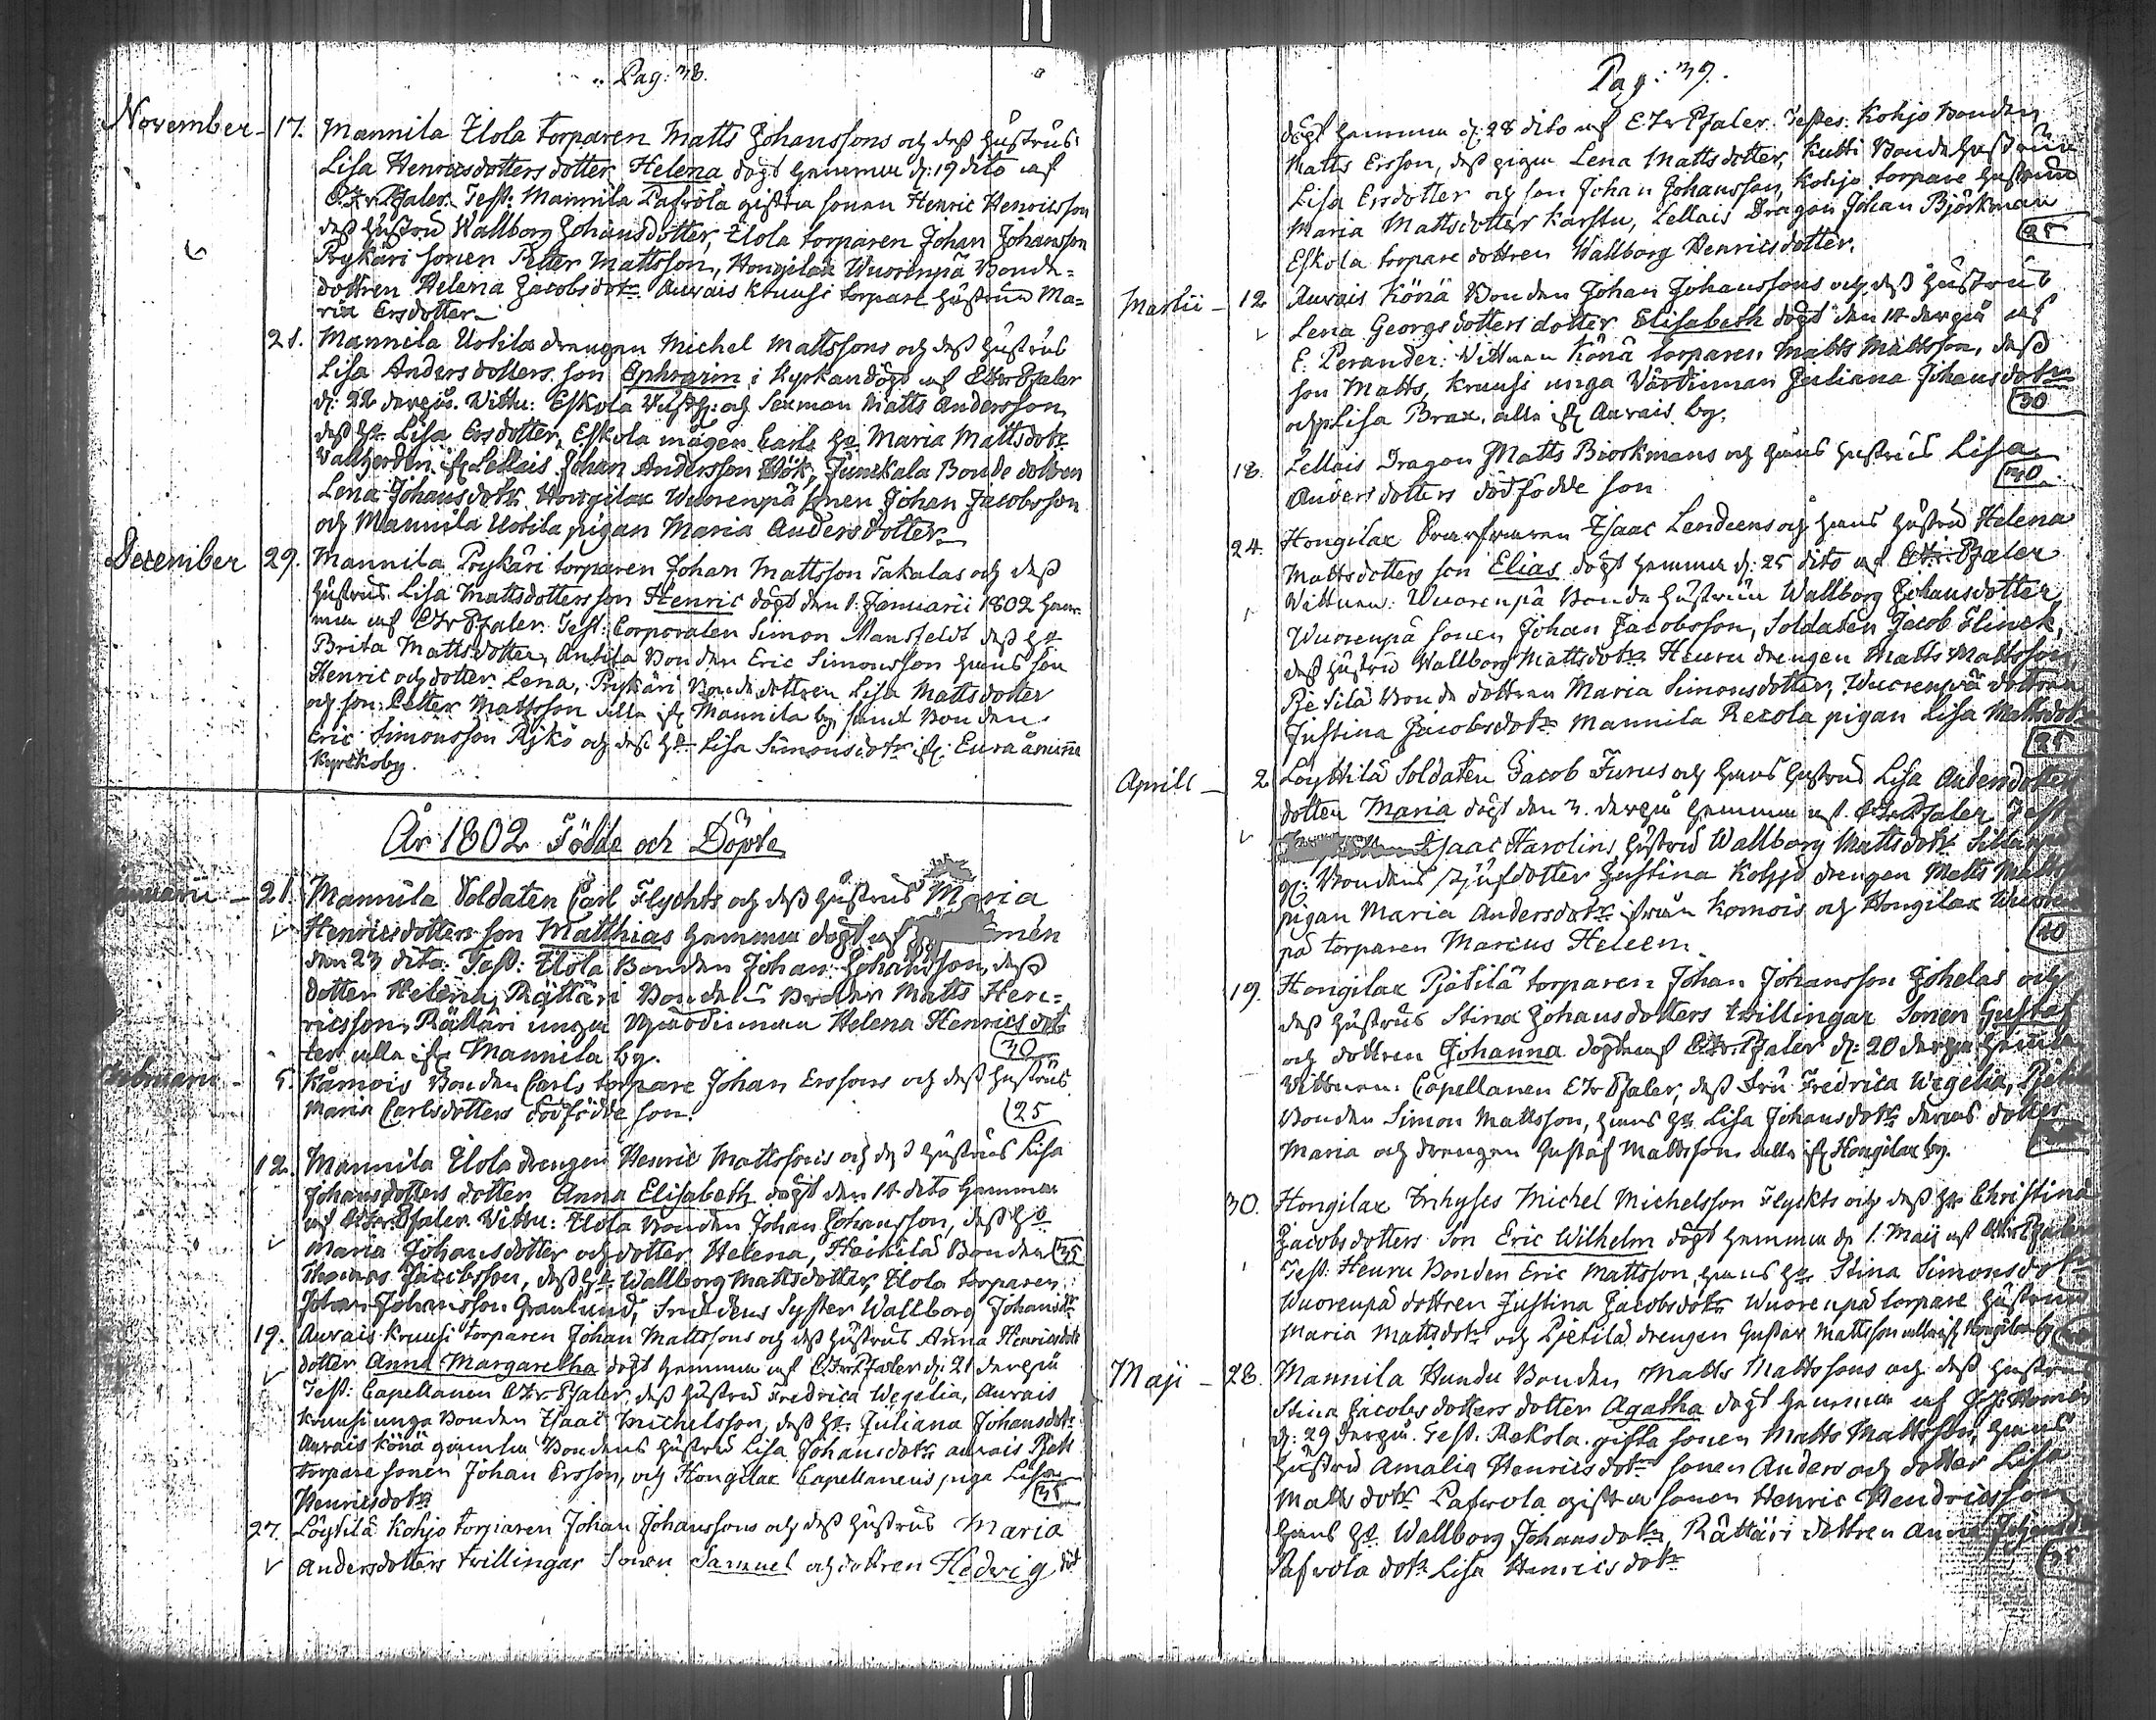 Pag: 38.
November - 17. Mannila Ülola torparen Matts Johanssons och dess hustrus
Lisa Henricsdotters dotter Helena döpt hemma d: 19 dito af
Test: Mannila Pafvola gifta sonen Henric Henricsson
dess hustru Wallborg Johansdotter, Ülola torparen Johan Johansson
Prykäri sonen Petter Mattsson, Hongilax Wuorenpä Bonde-
dottren Helena Jacobsdotr Aurais Kruusi torpare hustrun Ma-
ria Ersdotter
21. Mannila Uotila drengen Michel Mattssons och dess hustrus
Lisa Andersdotters son Ephraim i kyrkan döpt af
d: 22 derpå. Vittn: Eskola och Sexman Matts Andersson
dess h. Lisa Ersdotter, Eskola mågen Carls h. Maria Mattsdotr
ifr. Lellais Johan Andersson Hök, Junckala Bonde dottren
Lena Johansdotr Hongilax Wuorenpä sonen Johan Jacobsson
och Mannila Uotila pigan Maria Andersdotter
December 29. Mannila Prykäri torparen Johan Mattsson Takalas och dess
hustrus Lisa Mattsdotters son Henric döpt den 1. Januarii 1802 hem-
ma af Test: Corporalen Simon Mansfeldt dess h.
Brita Mattsdotter, Anttila Bonden Eric Simonsson hans son
Henric och dotter Lena, Prykäri Bondedottren Lisa Mattsdotter
och son Petter Mattsson alla ifr. Mannila by samt Bonden
Eric Simonsson Äjkö och dess h. Lisa Simonsdotr ifr. Eura åminne
Kyrkoby.
År 1802 Födde och Döpte
21. Mannila Soldaten Carl Flychts och dess hustrus Maria
Henricsdotters son Matthias hemma döpt af
den 23 dito. Test: Ülola Bonden Johan Johansson, dess
dotter Helena, Rättäri Bondens broder Matts Hen-
ricsson, Rättäri unga Wärdinnan Helena Henricsdot-
ter alla ifr. Mannila by. 30
Februarii - 5. Kåmois Bonden Carls torpare Johan Erssons och dess hustrus
Maria Carlsdotters dödfödde son. 25
12. Mannila Ülola drengen Henric Mattssons och dess hustrus Lisa
Johansdotters dotter Anna Elisabeth döpt den 14 dito hemma
af Vittn: Ülola Bonden Johan Johansson, dess h.
Maria Johansdotter och dotter Helena, Heikilä Bonden 35
Thomas Jacobsson, dess h. Wallborg Mattsdotter, Ülola torparen
Johan Johansson Granlund, Syster Wallborg Johansdr
19. Aurais Kruusi torparen Johan Mattssons och dess hustrus Anna Henricsdotr
dotter Anna Margaretha döpt hemma af d: 21 derpå
Test: Capellanen dess hustru Fredrica Wegelia, Aurais
Kruusi unga Bonden Isaac Michelsson, dess h. Juliana Johansdotr
Aurais Könä gamla Bondens hustru Lisa Johansdotr Aurais
torpare sonen Johan Ersson, och Hongilax Capellanens piga Lisa
Henricsdotr 35
27. Löytilä Kohjo torparen Johan Johanssons och dess hustrus Maria
Andersdotters tvillingar Sonen Samuel och dottren Hedvig
Pag: 39.
döpt hemma d: 28 dito af Testes: Kohjo Bonden
Matts Ersson, dess pigan Lena Mattsdotter, Kutti Bonde hustrun
Lisa Ersdotter och son Johan Johansson, Kohjo torpare hustrun
Maria Mattsdotter Karstu, Lellais Dragon Johan Björkman
Eskola torpare dottren Wallborg Henricsdotter. 25
Martii - 12 Aurais Könä Bonden Johan Johanssons och dess hustrus
Lena Georgsdotters dotter Elisabeth döpt den 14 derpå af
E. Perander. Vittnen Könä torparen Matts Mattsson, dess
son Matts, Kruusi unga Värdinnan Juliana Johansdotter
och Lisa Brax, alla ifr. Aurais by. 30
18. Lellais Dragon Matts Biorkmans och hans hustrus Lisa
Andersdotters dödfödde son 30
24. Hongilax Isaac Lendeens och hans hustru Helena
Mattsdotters son Elias döpt hemma d: 25 dito af
Vittnen: Wuorenpä Bonde hustrun Wallborg Johansdotter
Wuorenpä sonen Johan Jacobsson, Soldaten Jacob Flinck,
dess hustru Wallborg Mattsdotr Heuru drengen Matts Mattsson
Pietilä Bonde dottren Maria Simonsdotter, Wuorenpä dottren
Justina Jacobsdotr Mannila Recola pigan Lisa Mattsdotr
25
Aprill - 2 Löyttilä Soldaten Jacob Furus och hans hustrus Lisa Andersdotters
dotter Maria döpt den 3. derpå hemma af Test
Isaac Harolins hustru Wallborg Mattsdotr
Bondens styfdotter Justina Kohjo drengen Matts
pigan Maria Andersdotr ifrån Komois och Hongilax Wuoren-
pä torparen Marcus Heleen 40
19. Hongilax Pjätilä torparen Johan Johansson Johelas och
dess hustrus Stina Johansdotters tvillingar Sonen Gustaf
och dottren Johanna döpte af d: 20 derpå hemma
Vittnen: Capellanen dess Fru Fredrica Wegelia,
Bonden Simon Mattsson, hans h. Lisa Johansdotr deras dotter
Maria och drengen Gustaf Mattsson alla ifr. Hongilax by.
30. Hongilax Inhyses Michel Michelsson Flyckts och dess h. Christina
Jacobsdotters Son Eric Wilhelm döpt hemma d: 1. Maij af
Test: Heuru Bonden Eric Mattsson, hans h. Stina Simonsdotr
Wuorenpä dottren Justina Jacobsdotr Wuorenpä torpare hustrun
Maria Mattsdotr och Pjetilä drengen Gustav Mattsson alla ifr. Hongilax by
Maji - 28. Mannila Hundu Bonden Matts Mattssons och dess hustrus
Stina Jacobsdotters dotter Agatha döpt hemma af
d: 29 derpå. Test. Rekola gifta sonen Matts Mattsson, hans
hustru Amalia Henricsdotr sonen Anders och dotter Lisa
Mattsdotr Pafvola gifta sonen Henric Hendricsson
hans h. Wallborg Johansdotr, Rättäri dottren Anna
Pafvola dotr Lisa Henricsdotr 25